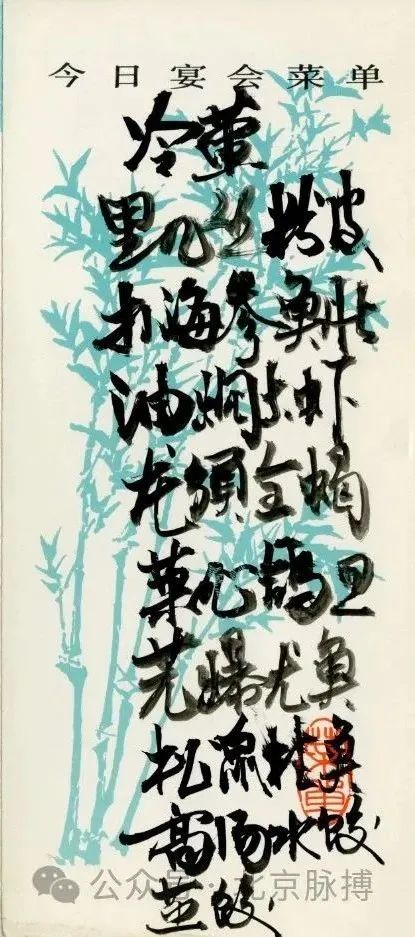 今日宴会菜单
冷荤
里几丝 拌皮
扒海参
油焖大虾
龙须全蝎
菜心鸽旦
芫爆尤鱼
松鼠桂鱼
高汤水饺
蒸饺
公众号 · 北京脉搏